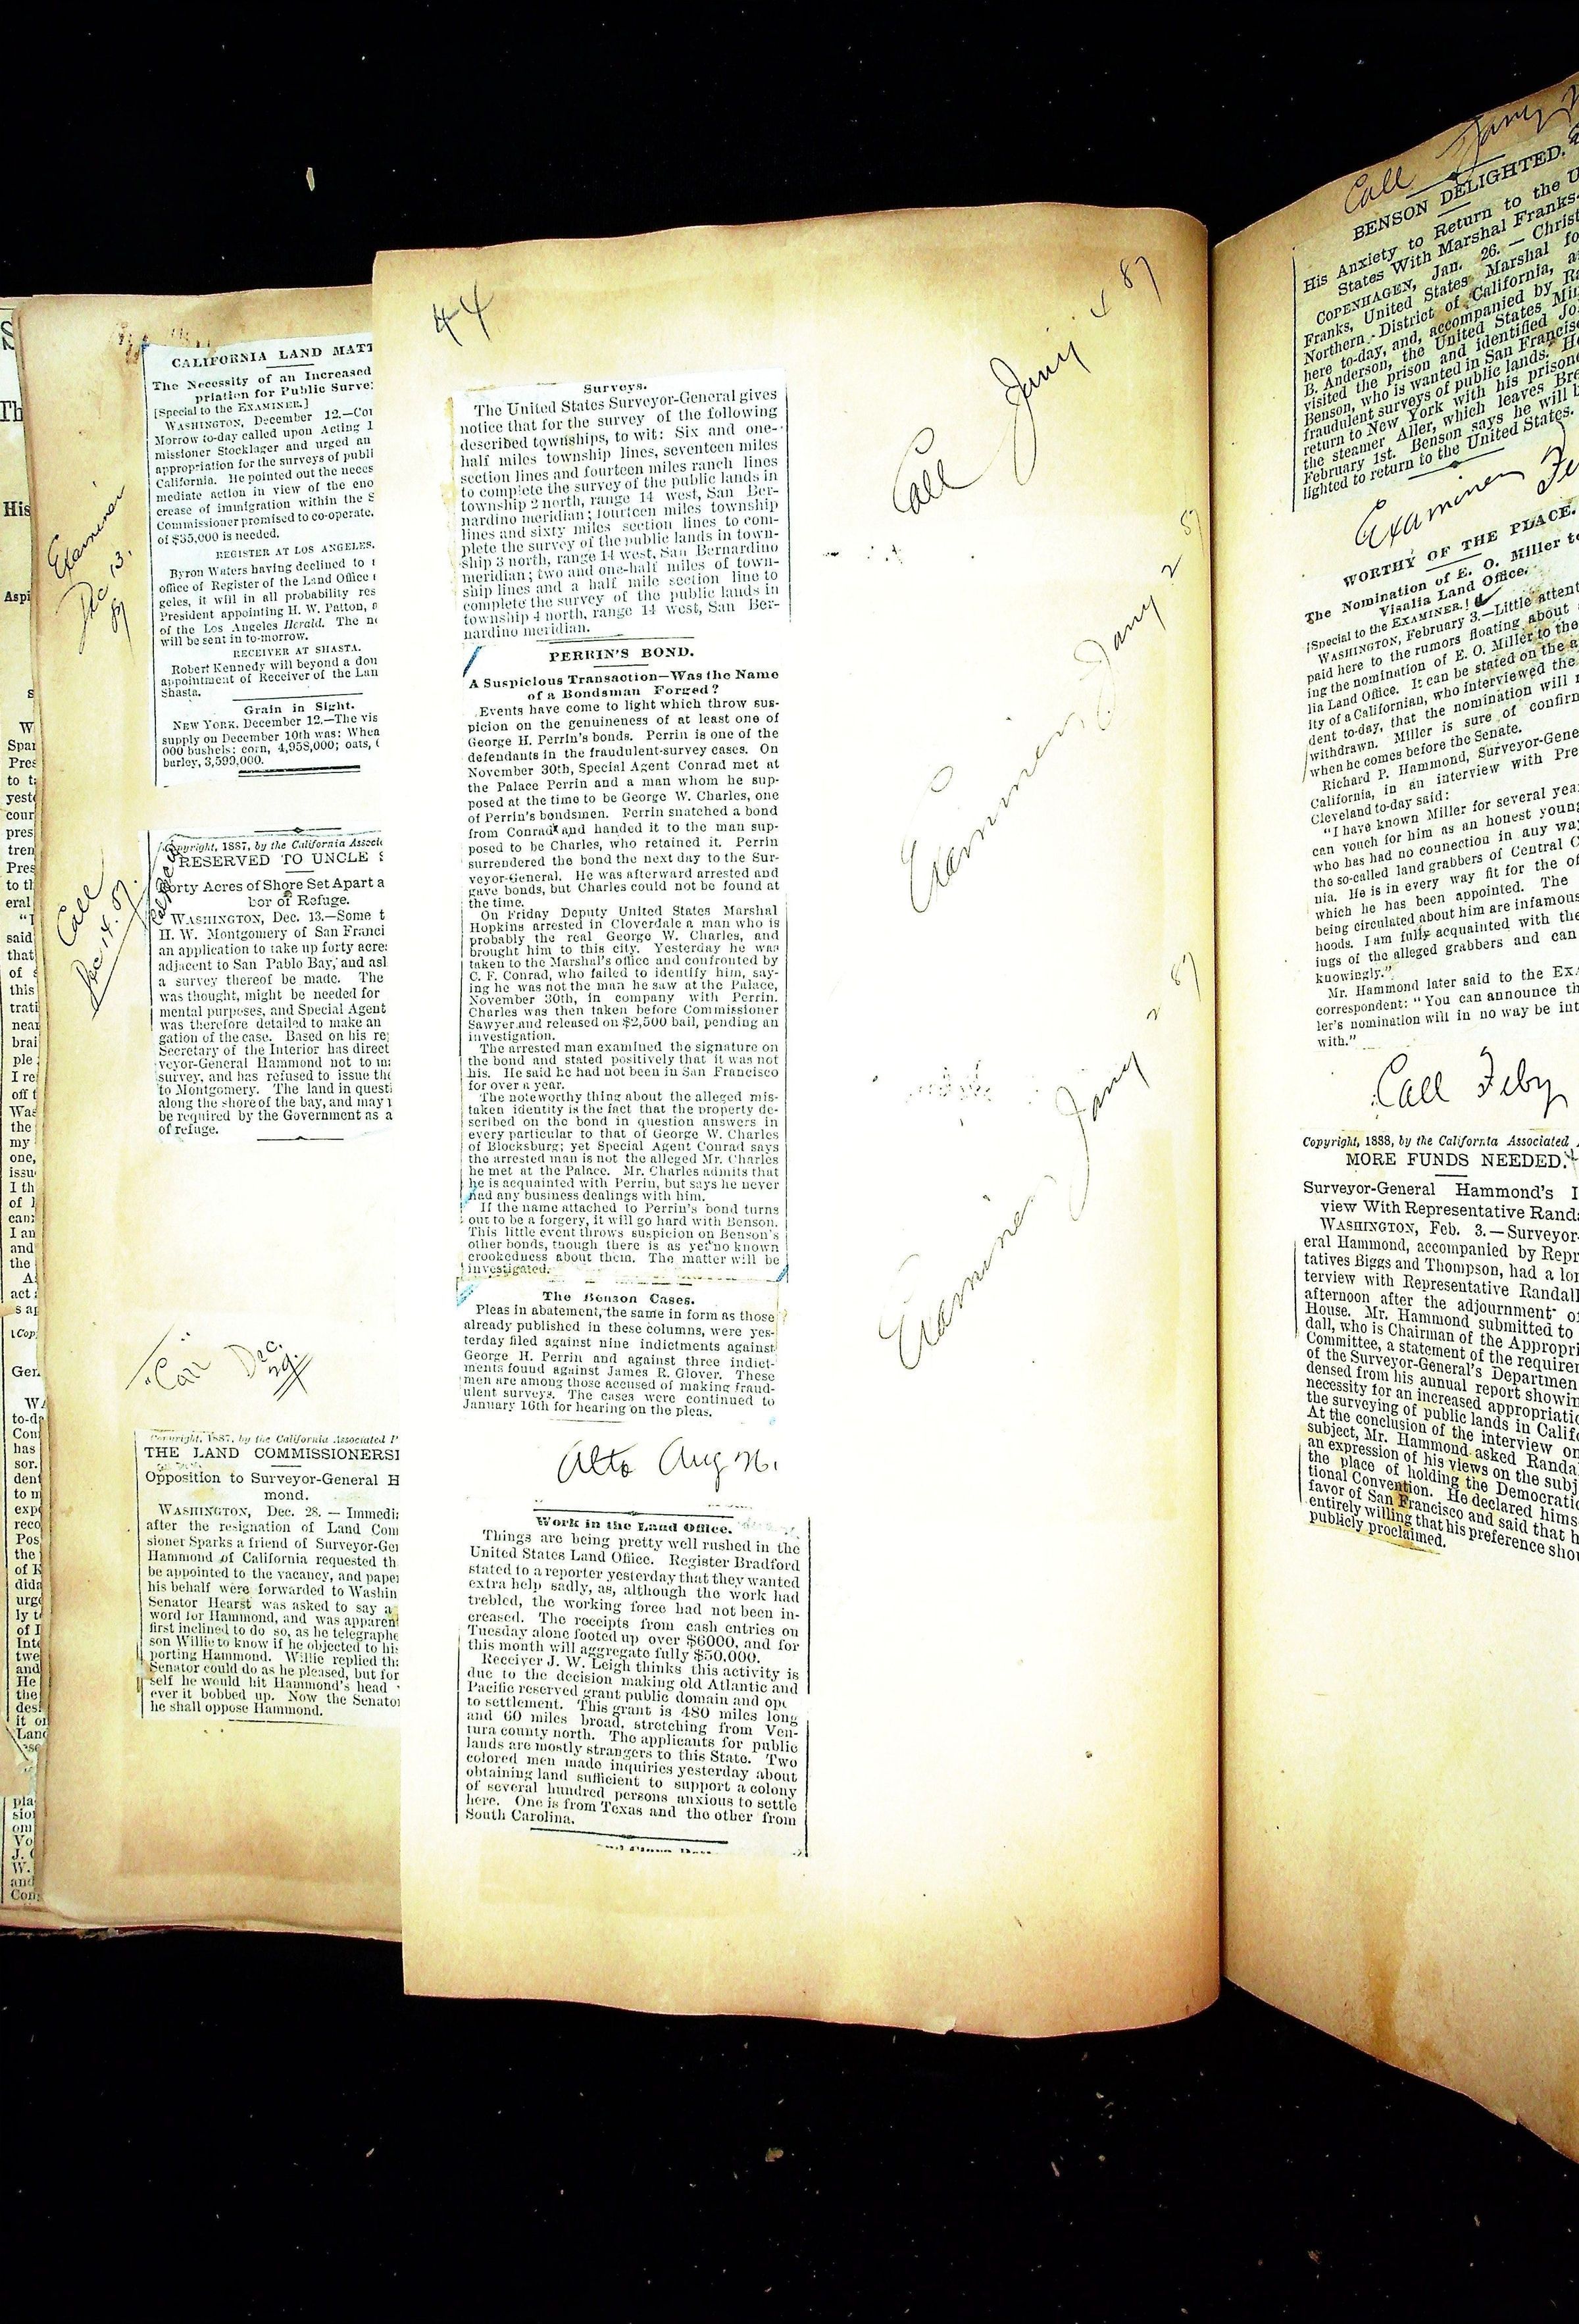 Examiner
Dec 13.
87
CALIFORNIA LAND MATT
The Necessity of an Increased
priation for Public Surve
[Special to the EXAMINER.]
WASHINGTON, December 12.—Co
Morrow to-day called upon Acting
missioner Stockslager and urged an
appropriation for the surveys of publi
California. He pointed out the neces
mediate action in view of the eno
crease of immigration within the S
Commissioner promised to co-operate.
of $35,000 is needed.
REGISTER AT LOS ANGELES.
Byron Waters having declined to
office of Register of the Land Office
geles, it will in all probability res
President appointing H. W. Patton,
of the Los Angeles Herald. The
will be sent in to-morrow.
RECEIVER AT SHASTA.
Robert Kennedy will beyond a dou
appointment of Receiver of the Lan
Shasta.
Grain in Sight.
NEW YORK, December 12.—The vis
supply on December 10th was: Whea
000 bushels; corn, 4,958,000; oats,
barley, 3,599,000.
Call
Dec 14. 87.
Copyright, 1887, by the California Associ
RESERVED TO UNCLE S
Forty Acres of Shore Set Apart a
bor of Refuge.
WASHINGTON, Dec. 13.—Some t
H. W. Montgomery of San Franci
an application to take up forty acre
adjacent to San Pablo Bay, and as
a survey thereof be made. The
was thought, might be needed for
mental purposes, and Special Agent
was therefore detailed to make an
gation of the case. Based on his re
Secretary of the Interior has direct
veyor-General Hammond not to m
survey, and has refused to issue the
to Montgomery. The land in questi
along the shore of the bay, and may
be required by the Government as a
of refuge.
Call Dec.
29
Copyright, 1887, by the California Associated P
THE LAND COMMISSIONERSI
Opposition to Surveyor-General H
mond.
WASHINGTON, Dec. 28. — Immedi
after the resignation of Land Com
sioner Sparks a friend of Surveyor-Ge
Hammond of California requested th
be appointed to the vacancy, and pape
his behalf were forwarded to Washin
Senator Hearst was asked to say a
word for Hammond, and was apparent
first inclined to do so, as he telegraphe
son Willie to know if he objected to his
porting Hammond. Willie replied tha
Senator could do as he pleased, but for
self he would hit Hammond's head
ever it bobbed up. Now the Senator
he shall oppose Hammond.
44
Surveys.
The United States Surveyor-General gives
notice that for the survey of the following
described townships, to wit: Six and one-
half miles township lines, seventeen miles
section lines and fourteen miles ranch lines
to complete the survey of the public lands in
township 2 north, range 14 west, San Ber-
nardino meridian; fourteen miles township
lines and sixty miles section lines to com-
plete the survey of the public lands in town-
ship 3 north, range 14 west, San Bernardino
meridian; two and one-half miles of town-
ship lines and a half mile section line to
complete the survey of the public lands in
township 4 north, range 14 west, San Ber-
nardino meridian.
PERRIN'S BOND.
A Suspicious Transaction—Was the Name
of a Bondsman Forged?
Events have come to light which throw sus-
picion on the genuineness of at least one of
George H. Perrin's bonds. Perrin is one of the
defendants in the fraudulent-survey cases. On
November 30th, Special Agent Conrad met at
the Palace Perrin and a man whom he sup-
posed at the time to be George W. Charles, one
of Perrin's bondsmen. Perrin snatched a bond
from Conrad and handed it to the man sup-
posed to be Charles, who retained it. Perrin
surrendered the bond the next day to the Sur-
veyor-General. He was afterward arrested and
gave bonds, but Charles could not be found at
the time.
On Friday Deputy United States Marshal
Hopkins arrested in Cloverdale a man who is
probably the real George W. Charles, and
brought him to this city. Yesterday he was
taken to the Marshal's office and confronted by
C. F. Conrad, who failed to identify him, say-
ing he was not the man he saw at the Palace,
November 30th, in company with Perrin.
Charles was then taken before Commissioner
Sawyer and released on $2,500 bail, pending an
investigation.
The arrested man examined the signature on
the bond and stated positively that it was not
his. He said he had not been in San Francisco
for over a year.
The noteworthy thing about the alleged mis-
taken identity is the fact that the property de-
scribed on the bond in question answers in
every particular to that of George W. Charles
of Blocksburg; yet Special Agent Conrad says
the arrested man is not the alleged Mr. Charles
he met at the Palace. Mr. Charles admits that
he is acquainted with Perrin, but says he never
had any business dealings with him.
If the name attached to Perrin's bond turns
out to be a forgery, it will go hard with Benson.
This little event throws suspicion on Benson's
other bonds, though there is as yet no known
crookedness about them. The matter will be
investigated.
The Benson Cases.
Pleas in abatement, the same in form as those
already published in these columns, were yes-
terday filed against nine indictments against
George H. Perrin and against three indict-
ments found against James R. Glover. These
men are among those accused of making fraud-
ulent surveys. The cases were continued to
January 16th for hearing on the pleas.
Alta Aug 26.
Work in the Land Office.
Things are being pretty well rushed in the
United States Land Office. Register Bradford
stated to a reporter yesterday that they wanted
extra help sadly, as, although the work had
trebled, the working force had not been in-
creased. The receipts from cash entries on
Tuesday alone footed up over $6000, and for
this month will aggregate fully $50,000.
Receiver J. W. Leigh thinks this activity is
due to the decision making old Atlantic and
Pacific reserved grant public domain and ope
to settlement. This grant is 480 miles long
and 60 miles broad, stretching from Ven-
tura county north. The applicants for public
lands are mostly strangers to this State. Two
colored men made inquiries yesterday about
obtaining land sufficient to support a colony
of several hundred persons anxious to settle
here. One is from Texas and the other from
South Carolina.
Call Jany 4 87
Examiner Jany 2 87
Examiner Jany 2 87
Call Jany
BENSON DELIGHTED.
His Anxiety to Return to the U
States With Marshal Franks.
COPENHAGEN, Jan. 26. — Christ
Franks, United States Marshal fo
Northern District of California, a
here to-day, and, accompanied by Ra
B. Anderson, the United States Min
visited the prison and identified Jo
Benson, who is wanted in San Francisc
fraudulent surveys of public lands. He
return to New York with his prisone
the steamer Aller, which leaves Bre
February 1st. Benson says he will b
lighted to return to the United States.
Examiner Fe
WORTHY OF THE PLACE.
The Nomination of E. O. Miller to
Visalia Land Office.
[Special to the EXAMINER.]
WASHINGTON, February 3.—Little attent
paid here to the rumors floating about
ing the nomination of E. O. Miller to the
lia Land Office. It can be stated on the a
ity of a Californian, who interviewed the
dent to-day, that the nomination will
withdrawn. Miller is sure of confirm
when he comes before the Senate.
Richard P. Hammond, Surveyor-Gene
California, in an interview with Pre
Cleveland to-day said:
"I have known Miller for several yea
can vouch for him as an honest young
who has had no connection in any wa
the so-called land grabbers of Central C
nia. He is in every way fit for the of
which he has been appointed. The
being circulated about him are infamous
hoods. I am fully acquainted with the
ings of the alleged grabbers and can
knowingly."
Mr. Hammond later said to the EXA
correspondent: "You can announce th
ler's nomination will in no way be int
with."
Call Feby
Copyright, 1888, by the California Associated
MORE FUNDS NEEDED.
Surveyor-General Hammond's I
view With Representative Randa
WASHINGTON, Feb. 3.—Surveyor-
eral Hammond, accompanied by Repr
tatives Biggs and Thompson, had a lon
terview with Representative Randall
afternoon after the adjournment of
House. Mr. Hammond submitted to
dall, who is Chairman of the Appropri
Committee, a statement of the requirem
of the Surveyor-General's Departmen
densed from his annual report showin
necessity for an increased appropriatio
the surveying of public lands in Califo
At the conclusion of the interview on
subject, Mr. Hammond asked Randa
an expression of his views on the subj
the place of holding the Democratic
tional Convention. He declared hims
favor of San Francisco and said that h
entirely willing that his preference shou
publicly proclaimed.